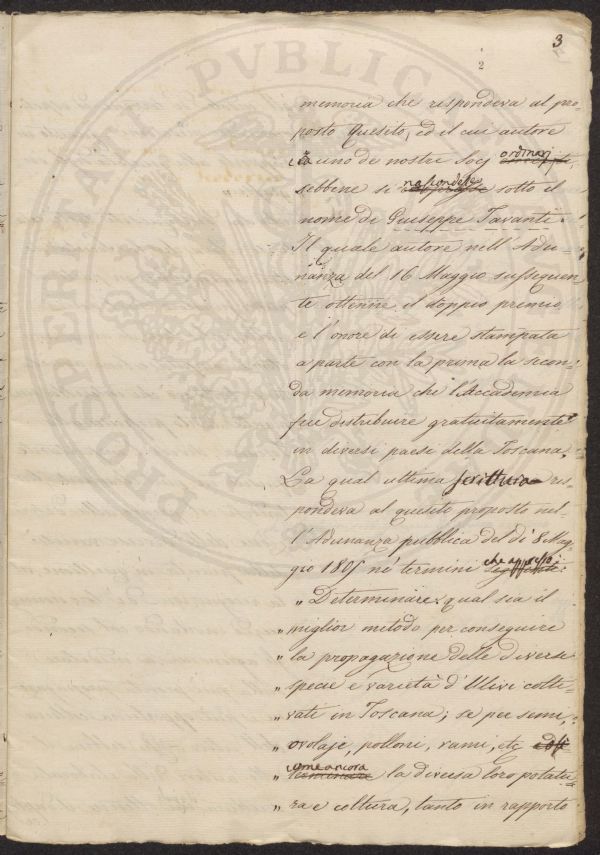 3
2
memoria che rispondeva al pro-
posto Quesito, ed il cui autore
era uno de nostri Socj ordinarj
sebbene si nascondesse sotto il
nome di Giuseppe Tavanti.
Il quale autore nell'Adu-
nanza del 16 Maggio susseguen
te ottenne il doppio premio
e l'onore di essere stampata
a parte con la prima la secon-
da memoria che l'Accademia
fece distribuire gratuitamente
in diversi paesi della Toscana.
La qual ultima scrittura ris-
pondeva al quesito proposto nel-
l'Adunanza pubblica del dì 8 Mag-
gio 1805 ne' termini che appresso:
„ Determinare: qual sia il
„ miglior metodo per conseguire
„ la propagazione delle diverse
„ specie e varietà d'Ulivi colti-
„ vati in Toscana; se per semi,
„ ovolaje, polloni, rami, etc
„ come ancora la diversa loro potatu-
„ ra e coltura, tanto in rapporto
PROSPERITATI PVBLICAE